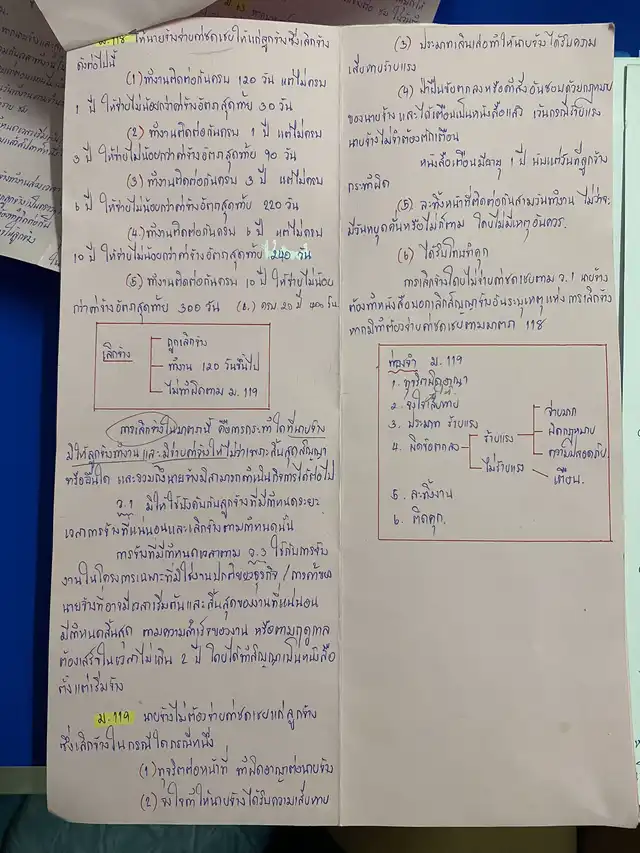 ม.118 ให้นายจ้างจ่ายค่าชดเชยให้แก่ลูกจ้างซึ่งเลิกจ้าง
ดังต่อไปนี้
(1) ทำงานติดต่อกันครบ 120 วัน แต่ไม่ครบ
1 ปี ให้จ่ายไม่น้อยกว่าค่าจ้างอัตราสุดท้าย 30 วัน
(2) ทำงานติดต่อกันครบ 1 ปี แต่ไม่ครบ
3 ปี ให้จ่ายไม่น้อยกว่าค่าจ้างอัตราสุดท้าย 90 วัน
(3) ทำงานติดต่อกันครบ 3 ปี แต่ไม่ครบ
6 ปี ให้จ่ายไม่น้อยกว่าค่าจ้างอัตราสุดท้าย 220 วัน
(4) ทำงานติดต่อกันครบ 6 ปี แต่ไม่ครบ
10 ปี ให้จ่ายไม่น้อยกว่าค่าจ้างอัตราสุดท้าย 240 วัน
(5) ทำงานติดต่อกันครบ 10 ปี ให้จ่ายไม่น้อย
กว่าค่าจ้างอัตราสุดท้าย 300 วัน (6.) ครบ 20 ปี 400 วัน
เลิกจ้าง
ถูกเลิกจ้าง
ทำงาน 120 วันขึ้นไป
ไม่ทำผิดตาม ม. 119
การเลิกจ้างในมาตรานี้ คือการกระทำใดที่นายจ้าง
มิให้ลูกจ้างทำงาน และมิจ่ายค่าจ้างให้ไม่ว่าเพราะสิ้นสุดสัญญา
หรืออื่นใด และรวมถึงนายจ้างมิสามารถดำเนินกิจการได้ต่อไป
ว.1 มิให้ใช้บังคับกับลูกจ้างที่มีกำหนดระยะ
เวลาการจ้างที่แน่นอนและเลิกจ้างตามกำหนดนั้น
การจ้างที่มีกำหนดเวลาตาม ว.3 ใช้กับการจ้าง
งานในโครงการเฉพาะที่มิใช่งานปกติของธุรกิจ / การค้าของ
นายจ้างที่อาจมีเวลาเริ่มต้นและสิ้นสุดของงานที่แน่นอน
มีกำหนดสิ้นสุด ตามความสำเร็จของงาน หรือตามฤดูกาล
ต้องเสร็จในเวลาไม่เกิน 2 ปี โดยได้ทำสัญญาเป็นหนังสือ
ตั้งแต่เริ่มจ้าง
ม.119 นายจ้างไม่ต้องจ่ายค่าชดเชยแก่ลูกจ้าง
ซึ่งเลิกจ้างในกรณีใดกรณีหนึ่ง
(1) ทุจริตต่อหน้าที่ ทำผิดอาญาต่อนายจ้าง
(2) จงใจทำให้นายจ้างได้รับความเสียหาย
(3) ประมาทเลินเล่อทำให้นายจ้างได้รับความ
เสียหายร้ายแรง
(4) ฝ่าฝืนข้อตกลงหรือคำสั่งอันชอบด้วยกฎหมาย
ของนายจ้าง และได้เตือนเป็นหนังสือแล้ว เว้นกรณีร้ายแรง
นายจ้างไม่จำต้องตักเตือน
หนังสือเตือนมีอายุ 1 ปี นับแต่วันที่ลูกจ้าง
กระทำผิด
(5) ละทิ้งหน้าที่ติดต่อกันสามวันทำงาน ไม่ว่าจะ
มีวันหยุดคั่นหรือไม่ก็ตาม โดยไม่มีเหตุอันควร
(6) ได้รับโทษจำคุก
การเลิกจ้างโดยไม่จ่ายค่าชดเชยตาม ว.1 นายจ้าง
ต้องทำหนังสือบอกเลิกสัญญาจ้างอันระบุเหตุแห่งการเลิกจ้าง
หากมิทำต้องจ่ายค่าชดเชยตามมาตรา 118
ท่องจำ ม.119
1. ทุจริตผิดอาญา
2. จงใจเสียหาย
3. ประมาท ร้ายแรง
4. ผิดข้อตกลง
ร้ายแรง
จ่ายมาก
ผิดกฎหมาย
ความปลอดภัย
ไม่ร้ายแรง
เตือน.
5. ละทิ้งงาน
6. ติดคุก.